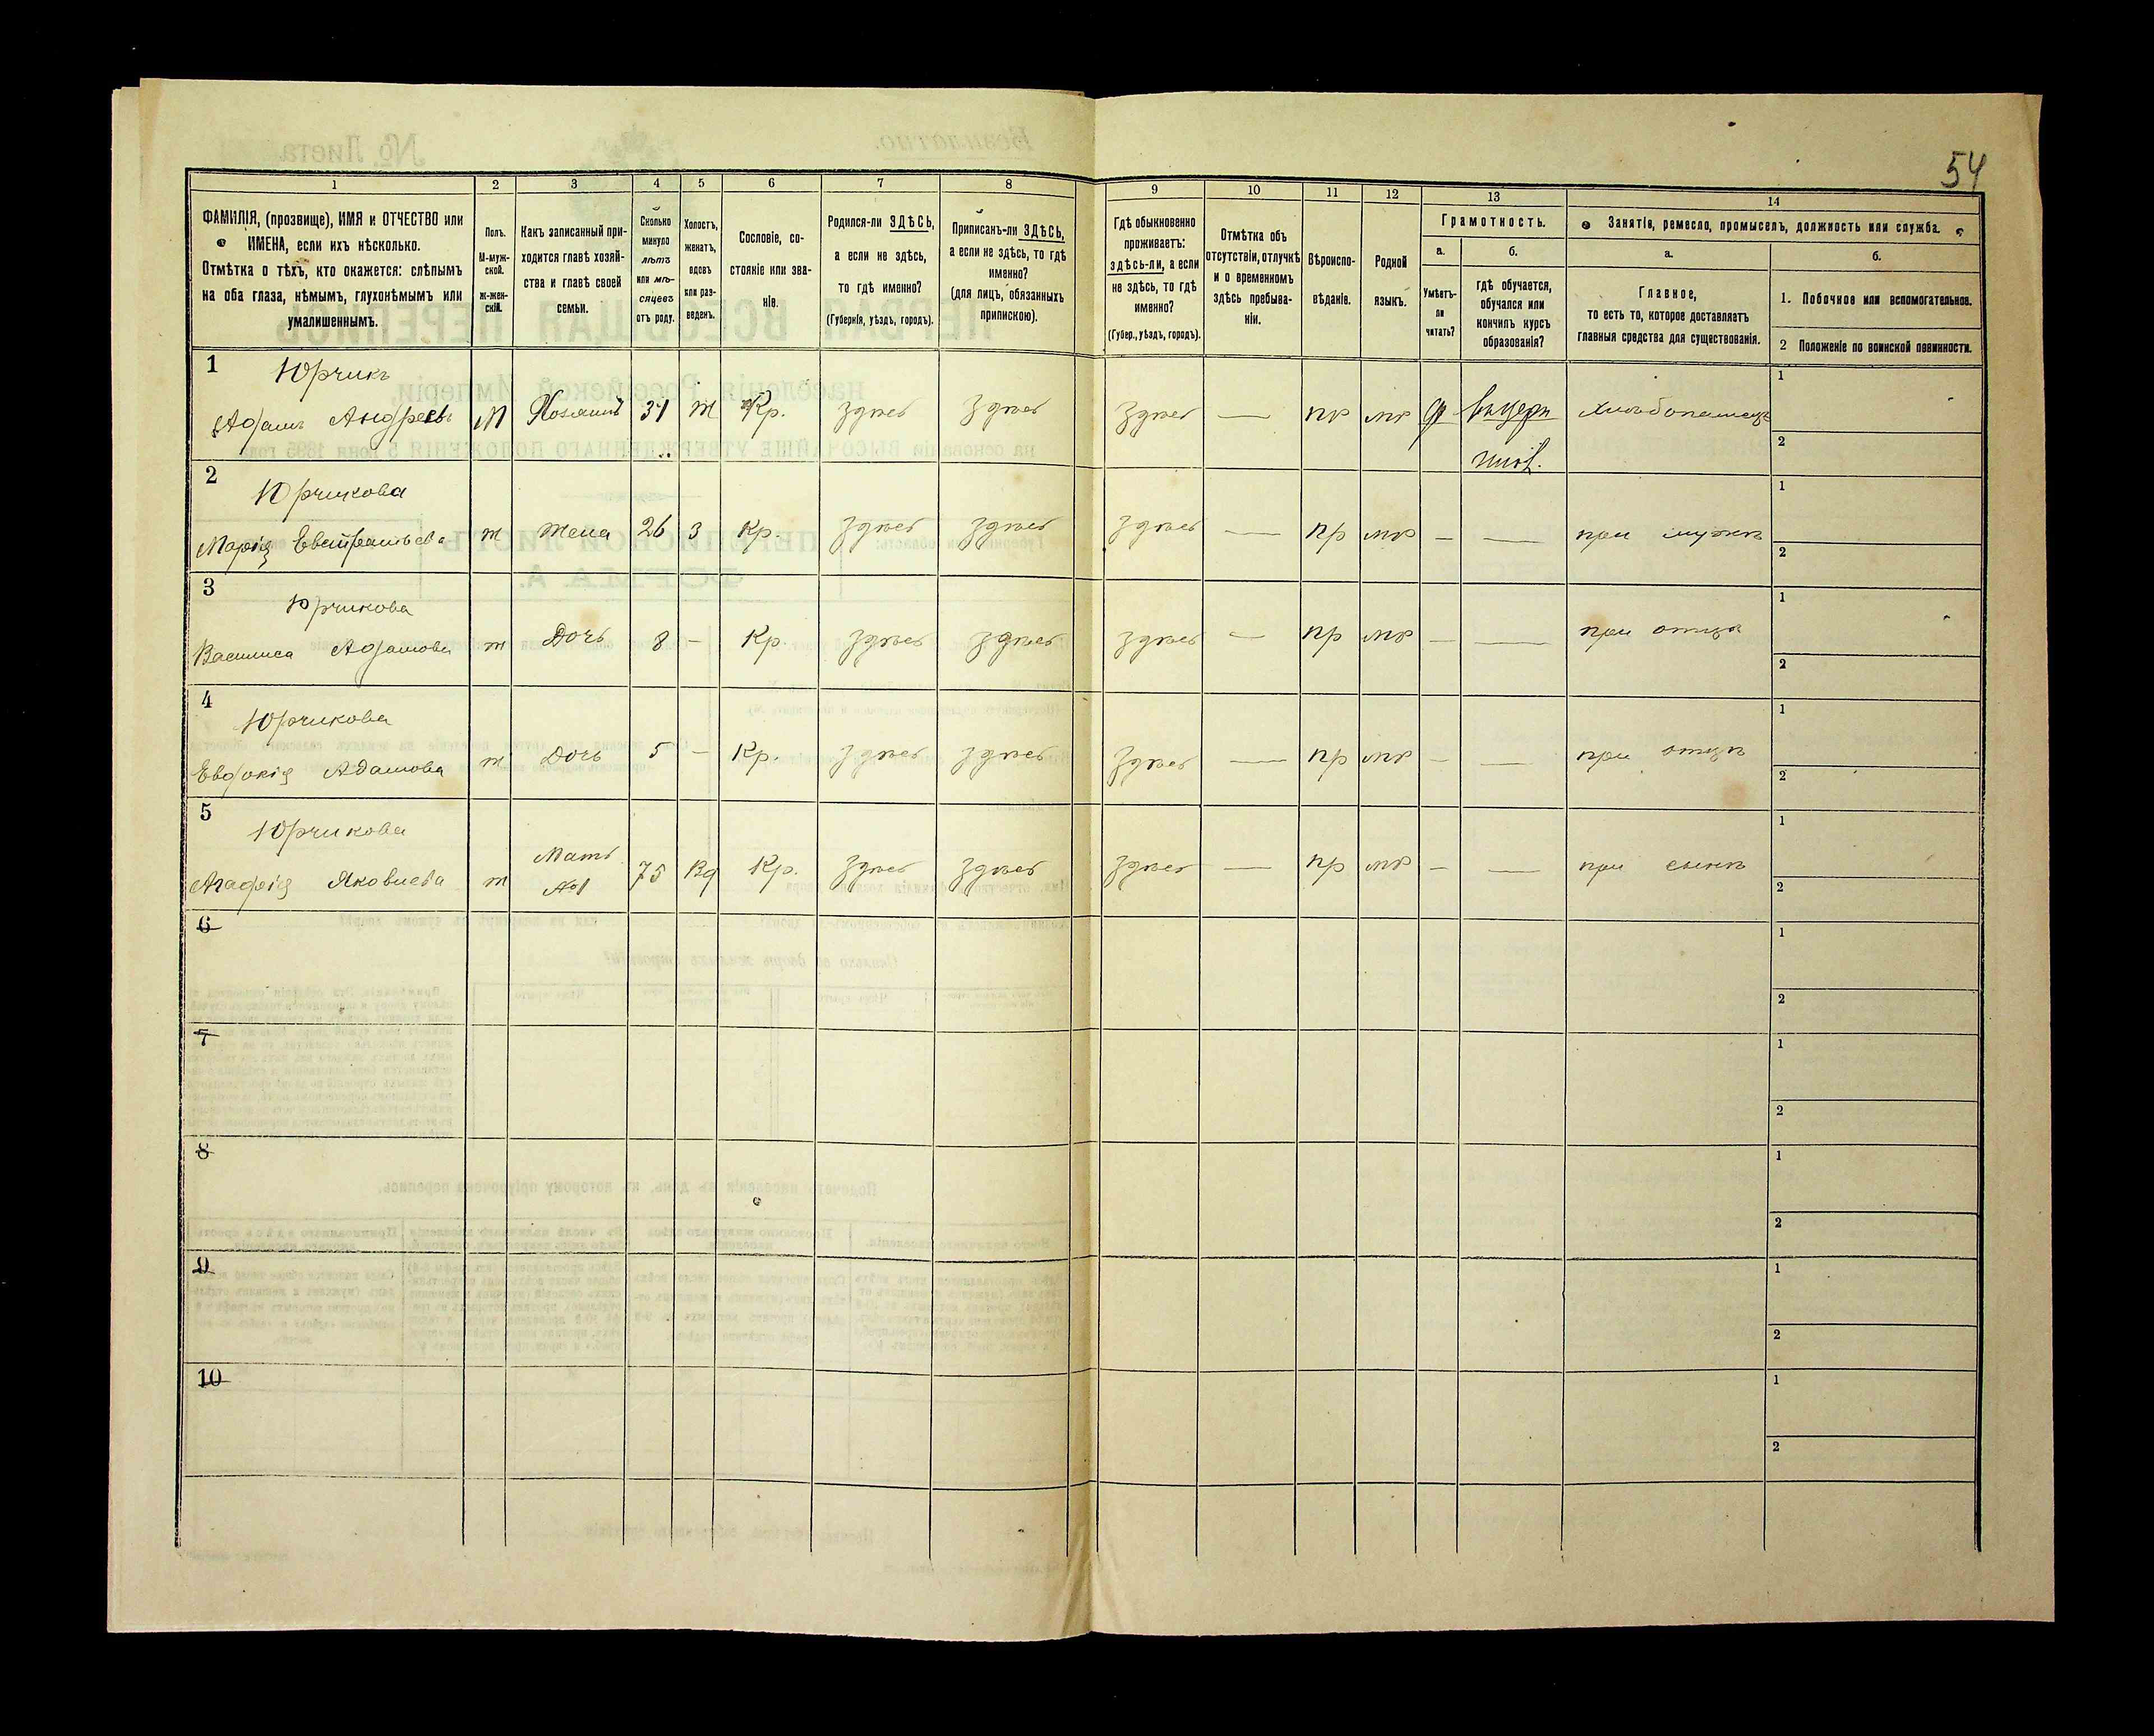 54
1
2
3
4
5
6
7
8
9
10
11
12
13
14
ФАМИЛІЯ, (прозвище), ИМЯ и ОТЧЕСТВО или
ИМЕНА, если ихъ нѣсколько.
Отмѣтка о тѣхъ, кто окажется: слѣпымъ
на оба глаза, нѣмымъ, глухонѣмымъ или
умалишеннымъ.
Полъ.
М-муж-
ской.
ж-жен-
скій.
Какъ записанный при-
ходится главѣ хозяй-
ства и главѣ своей
семьи.
Сколько
минуло
лѣтъ
или мѣ-
сяцевъ
отъ роду.
Холостъ,
женатъ,
вдовъ
или раз-
веденъ.
Сословіе, со-
стояніе или зва-
ніе.
Родился-ли ЗДѢСЬ,
а если не здѣсь,
то гдѣ именно?
(Губернія, уѣздъ, городъ).
Приписанъ-ли ЗДѢСЬ,
а если не здѣсь, то гдѣ
именно?
(для лицъ, обязанныхъ
припискою).
Гдѣ обыкновенно
проживаетъ:
здѣсь-ли, а если
не здѣсь, то гдѣ
именно?
(Губер., уѣздъ, городъ).
Отмѣтка объ
отсутствіи, отлучкѣ
и о временномъ
здѣсь пребыва-
ніи.
Вѣроиспо-
вѣданіе.
Родной
языкъ.
Грамотность.
а.
Умѣетъ-
ли
читать?
б.
гдѣ обучается,
обучался или
кончилъ курсъ
образованія?
Занятія, ремесло, промыселъ, должность или служба.
а.
Главное,
то есть то, которое доставляетъ
главныя средства для существованія.
б.
1. Побочное или вспомогательное.
2 Положеніе по воинской повинности.
1 Юрчикъ
Адамъ Андреевъ М Хозяинъ 34 ж Кр. здѣсь здѣсь здѣсь — пр мр хлѣбопашецъ
1
2
2 Юрчикова
Марія ж жена 26 З Кр. здѣсь здѣсь здѣсь — пр мр — — при мужѣ
1
2
3 Юрчикова
Василиса Адамова ж Дочь 8 — Кр. здѣсь здѣсь здѣсь — пр мр — — при отцѣ
1
2
4 Юрчикова
Евдокія Адамова ж Дочь 5 — Кр. здѣсь здѣсь здѣсь — пр мр — — при отцѣ
1
2
5 Юрчикова
Агафія Яковлева ж Мать №1 75 Вд Кр. здѣсь здѣсь здѣсь — пр мр — — при сынѣ
1
2
6
1
2
7
1
2
8
1
2
9
1
2
10
1
2